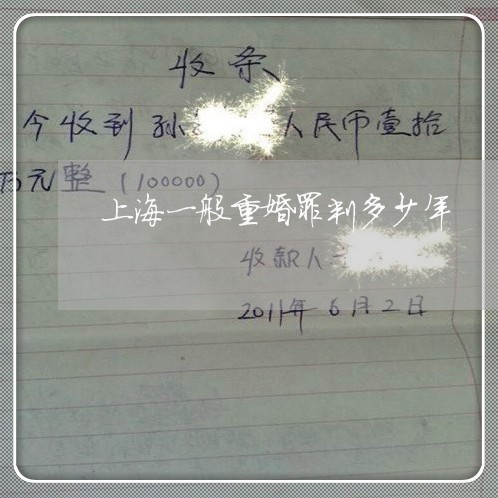 收条
今收到孙 人民币壹拾
万元整(100000)
上海一般重婚罪判多少年
收款人
2011年6月2日